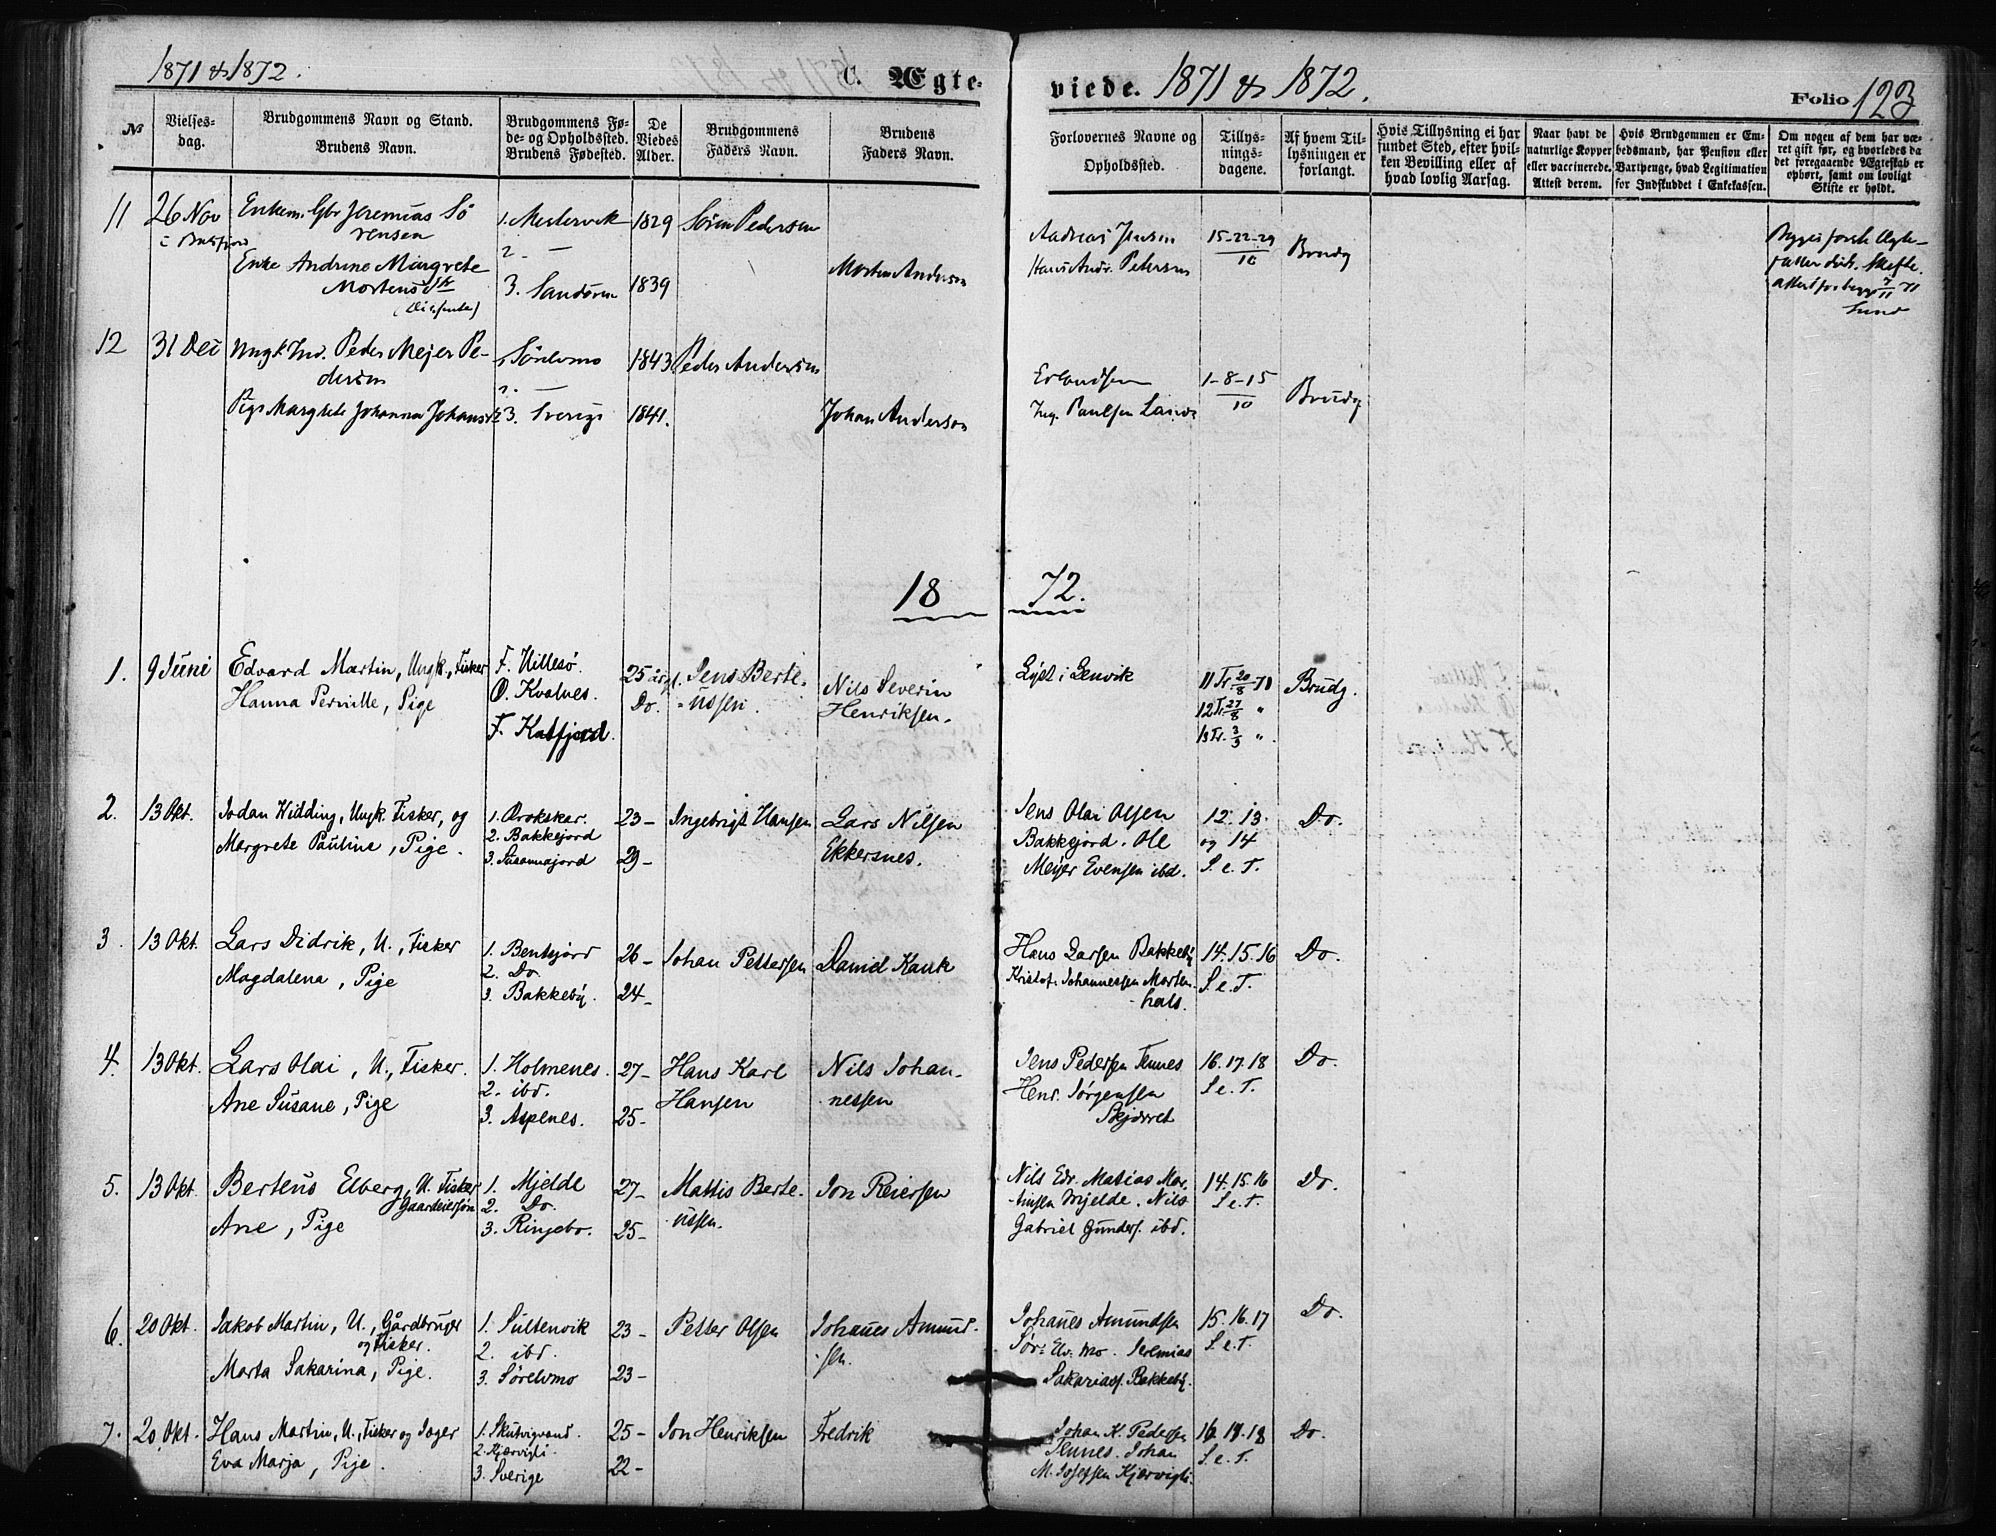 1871 & 1872.
C. Ægte-
viede. 1871 & 1872.
Folio 123
№
Vielses-
dag.
Brudgommens Navn og Stand.
Brudens Navn.
Brudgommens Fø-
de- og Opholdssted.
Brudens Fødested.
De
Viedes
Alder.
Brudgommens
Faders Navn.
Brudens
Faders Navn.
Forlovernes Navne og
Opholdssted.
Tillys-
nings-
dagene.
Af hvem Til-
lysningen er
forlangt.
Hvis Tillysning ei har
fundet Sted, efter hvil-
ken Bevilling eller af
hvad lovlig Aarsag.
Naar havt de
naturlige Kopper
eller vaccinerede.
Attest derom.
Hvis Brudgommen er Em-
bedsmand, har Pension eller
Vartpenge, hvad Legitimation
for Indskuddet i Enkekassen.
Om nogen af dem har væ-
ret gift før, og hvorledes da
det foregaaende Ægteskab er
ophørt, samt om lovligt
Skifte er holdt.
11 26 Nov
Enkem. Gbr Jeremias Sö
rensen
Enke Andrine Margrete
Mortensdtr
(Dissenter)
1. Mestervik
2. —
3. Sandören
1829
1839
Sören Pedersen
Morten Andersen
Andreas Jensen
Hans Andr. Petersen
15-22-29
10
Brudg
Begges forste Ægte-
fæller döde. Skifte-
attest for begge 7/11 71
Lund
12 31 Dec
Ungk. Ind. Peder Mejer Pe-
dersen
Pige Margrete Johanna Johansdtr
1. Sörelvmo
2. —
3. Sverige
1843
1841.
Peder Andersen
Johan Anderson
Erlandsen
Ing. Paulsen
1-8-15
10
Brudg
18 72.
1. 9 Juni
Edvard Martin, Ungk., Fisker
Hanna Pernille, Pige
F. Hillesö.
O. Kvalnes.
F. Katfjord.
25 år
Do.
Jens Berte-
ussen.
Nils Severin
Henriksen.
Lyst i Lenvik
11 Tr. 20/8 71
12 Tr. 27/8 "
13 Tr. 3/3 "
Brudg.
2. 13 Okt.
Jodan Hidding, Ungk. Fisker, og
Margrete Pauline, Pige.
1. Brokskar.
2. Bakkejord
3. Susannajord
23-
29-
Ingebrigt Hansen
Lars Nilsen
Ekkersnes.
Jens Olai Olsen
Bakkejord. Ole
Meijer Evensen ibd.
12. 13.
og 14
S. e. T.
Do.
3. 13 Okt.
Lars Didrik, U., Fisker
Magdalena, Pige
1. Bentsjord
2. Do
3. Bakkeby.
26-
24-
Johan Pettersen
David Kauk
Hans Larsen Bakkeby
Kristof. Johannessen Morten-
hals.
14. 15. 16
S. e. T.
Do.
4. 13 Okt.
Lars Olai, U., Fisker.
Ane Susane, Pige
1. Holmenes.
2. ibd.
3. Aspenes.
27-
25-
Hans Karl
Hansen
Nils Johan-
nessen
Jens Pedersen Tennes
Henr. Jørgensen
Skjæret
16. 17. 18
S. e. T.
Do.
5. 13 Okt.
Berteus Elberg, U. Fisker
Gaardeiersøn
Ane, Pige
1. Mjelde
2. Do.
3. Ringebo.
27-
25-
Mattis Berte-
ussen.
Jon Reiersen
Nils Edv. Matias Mar-
tinsen Mjelde. Nils
Gabriel Gunders. ibd.
14. 15. 16
S. e. T.
Do.
6. 20 Okt.
Jakob Martin, U., Gårdbruger
og Fisker.
Marta Sakarina, Pige.
1. Sultenvik
2. ibd.
3. Sørelvmo
23-
23-
Petter Olsen
Johanes Amund-
sen.
Johanes Amundsen
Sør-Elv.mo. Jeremias
Sakarias. Bakkeby.
15. 16. 17
S. e. T.
Do.
7. 20. Okt.
Hans Martin, U., Fisker og Jæger
Eva Marja, Pige.
1. Skutvigvand.
2. Kjærvigli
3. Sverige
25-
22-
Jon Henriksen
Fredrik
Johan K. Pedersen
Tennes. Johan
M. Josefsen Kjærvigli.
16. 17. 18
S. e. T.
Do.